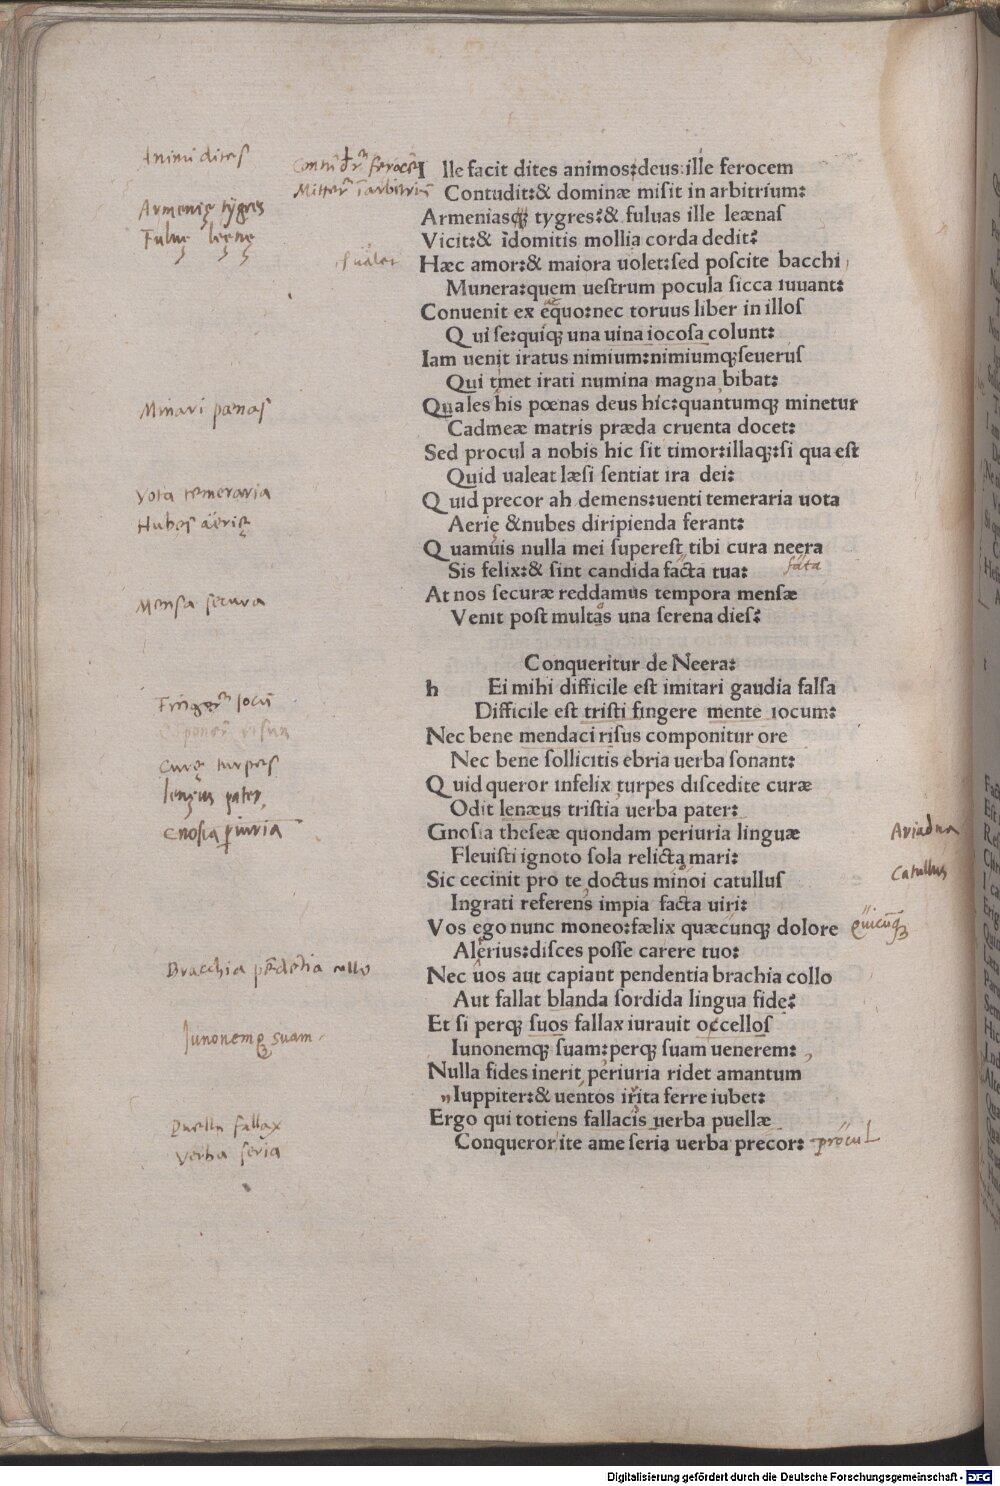 Animi dites
Armenię tygres
Fuluę leęnę
Ille facit dites animos:deus:ille ferocem
Contudit:& dominæ misit in arbitrium:
Armeniasqꝫ tygres:& fuluas ille leænas
Vicit:& ĩdomitis mollia corda dedit:
Hæc amor:& maiora uolet:sed poscite bacchi
Munera:quem uestrum pocula sicca iuuant:
Conuenit ex equo:nec toruus liber in illos
Q ui se:quiqꝫ una uina iocosa colunt:
Iam uenit iratus nimium:nimiumqꝫ seuerus
Qui timet irati numina magna bibat:
Minari pœnas
Quales his pœnas deus hic:quantumqꝫ minetur
Cadmeæ matris præda cruenta docet:
Sed procul a nobis hic sit timor:illaqꝫ:si qua est
Quid ualeat læsi sentiat ira dei:
Vota temeraria
Q uid precor ah demens:uenti temeraria uota
Nubes aerię
Aerię & nubes diripienda ferant:
Q uamuis nulla mei superest tibi cura neera
Sis felix:& sint candida facta tua: fata
Mensa secura
At nos securæ reddamus tempora mensæ
Venit post multas una serena dies:
Conqueritur de Neera:
h Ei mihi difficile est imitari gaudia falsa
Difficile est tristi fingere mente iocum:
Nec bene mendaci risus componitur ore
Nec bene sollicitis ebria uerba sonant:
Curę turpes
Q uid queror infelix turpes discedite curæ
lenęus pater
Odit lenæus tristia uerba pater:
Gnosia theseæ quondam periuria linguæ
Ariadna
Fleuisti ignoto sola relicta mari:
Sic cecinit pro te doctus minoi catullus
Catullus
Ingrati referens impia facta uiri:
Vos ego nunc moneo:fælix quæcunqꝫ dolore
Quicũqꝫ
Alerius:disces posse carere tuo:
Bracchia pẽdẽtia collo
Nec uos aut capiant pendentia brachia collo
Aut fallat blanda sordida lingua fide:
Et si perqꝫ suos fallax iurauit occellos
Iunonemqꝫ suam
Iunonemqꝫ suam:perqꝫ suam uenerem:
Nulla fides inerit periuria ridet amantum
Iuppiter:& uentos irita ferre iubet:
Ergo qui totiens fallacis uerba puellæ
Puella fallax
Conqueror ite ame seria uerba precor: procul
Verba seria
Digitalisierung gefördert durch die Deutsche Forschungsgemeinschaft - DFG